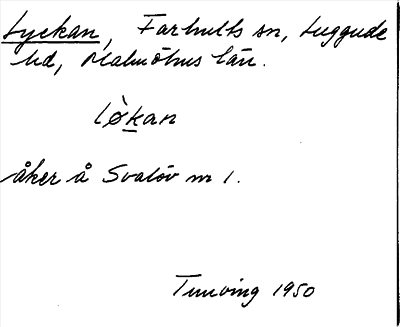 Lyckan, Farhults sn, Luggude
hd, Malmöhus län.
lø̀kan
åker å Svalöv nr 1.
Tuneving 1950